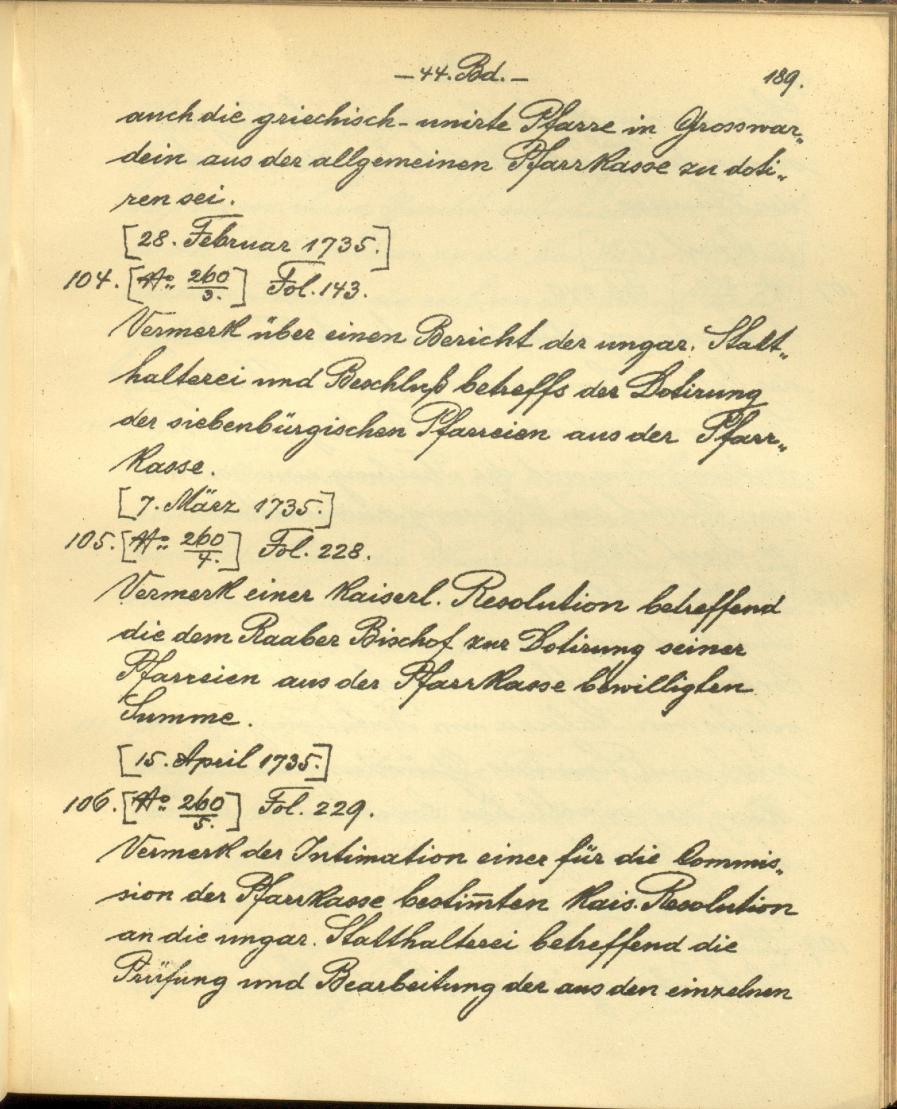 – 44. Bd. –
189.
auch die griechisch-unirte Pfarre in Grosswar„
dein aus der allgemeinen Pfarrkasse zu doti„
ren sei.
[28. Februar 1735.]
104. [Ao: 260/3.] Fol. 143.
Vermerk über einen Bericht der ungar. Statt„
halterei und Beschluß betreffs der Dotirung
der siebenbürgischen Pfarreien aus der Pfarr„
kasse.
[7. März 1735.]
105. [Ao: 260/4.] Fol. 228.
Vermerk einer kaiserl. Resolution betreffend
die dem Raaber Bischof zur Dotirung seiner
Pfarreien aus der Pfarrkasse bewilligten
Summe.
[15. April 1735.]
106. [Ao: 260/5.] Fol. 229.
Vermerk der Intimation einer für die Commis„
sion der Pfarrkasse bestim̅ten kais. Resolution
an die ungar. Statthalterei betreffend die
Prüfung und Bearbeitung der aus den einzelnen